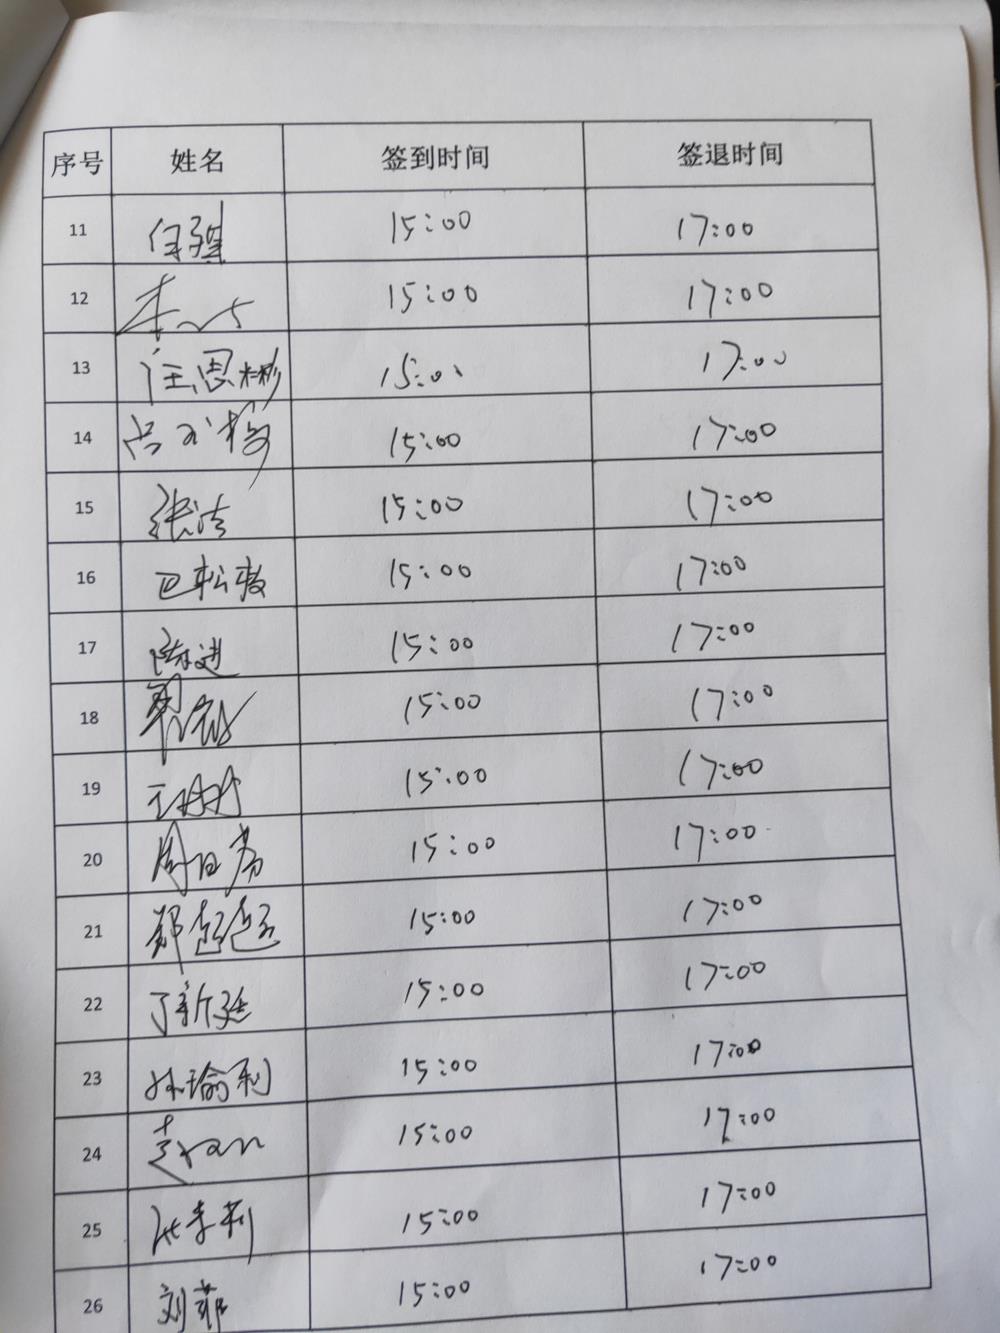 序号 姓名 签到时间 签退时间
11 15:00 17:00
12 15:00 17:00
13 汪思彬 15:00 17:00
14 15:00 17:00
15 张洁 15:00 17:00
16 巴松敏 15:00 17:00
17 陈进 15:00 17:00
18 15:00 17:00
19 王彬彬 15:00 17:00
20 周日芳 15:00 17:00
21 郑超超 15:00 17:00
22 丁新廷 15:00 17:00
23 孙瑜利 15:00 17:00
24 15:00 17:00
25 李莉 15:00 17:00
26 刘菲 15:00 17:00